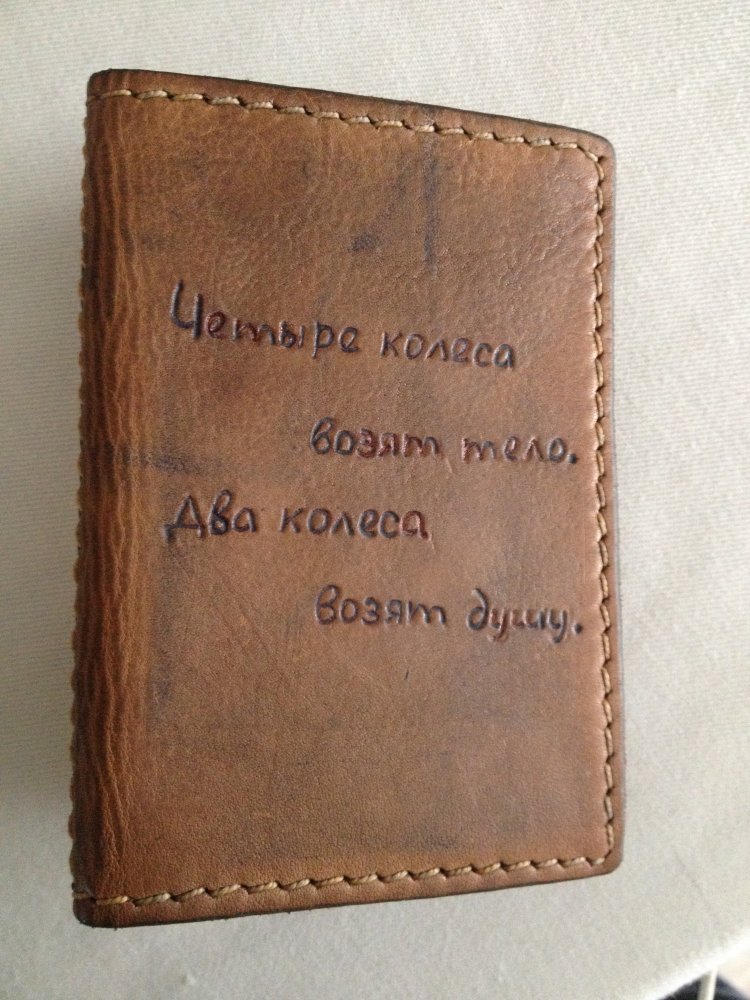 Четыре колеса
возят тело.
Два колеса
возят душу.